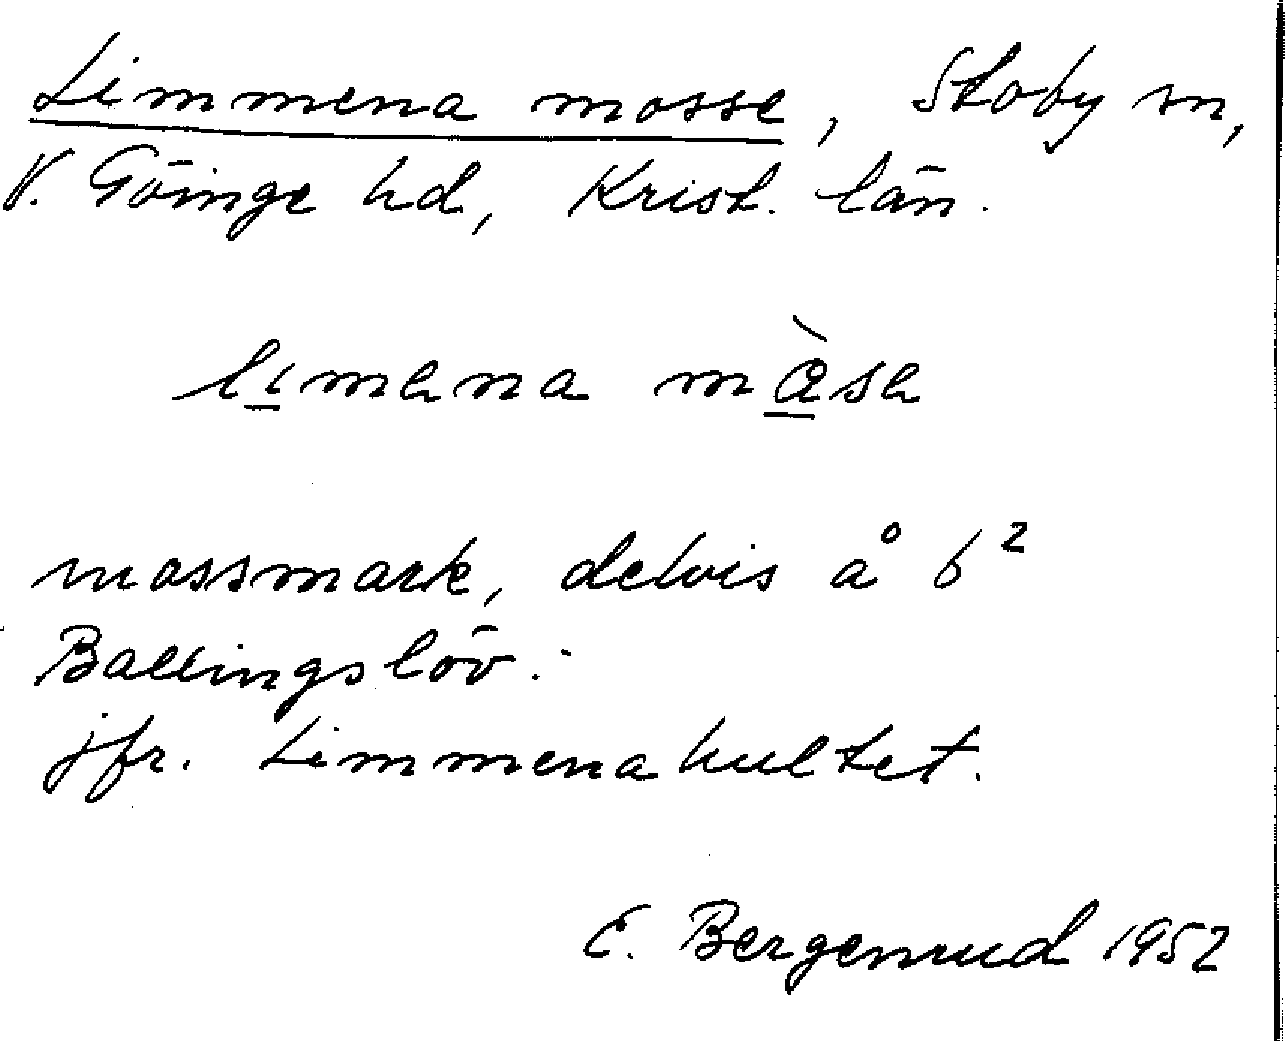 Limmena mosse, Stoby sn,
V. Göinge hd, Krist. län.
limena måse
mossmark, delvis å 6²
Ballingslöv.
jfr. Limmenahultet.
E. Bergenrud 1952